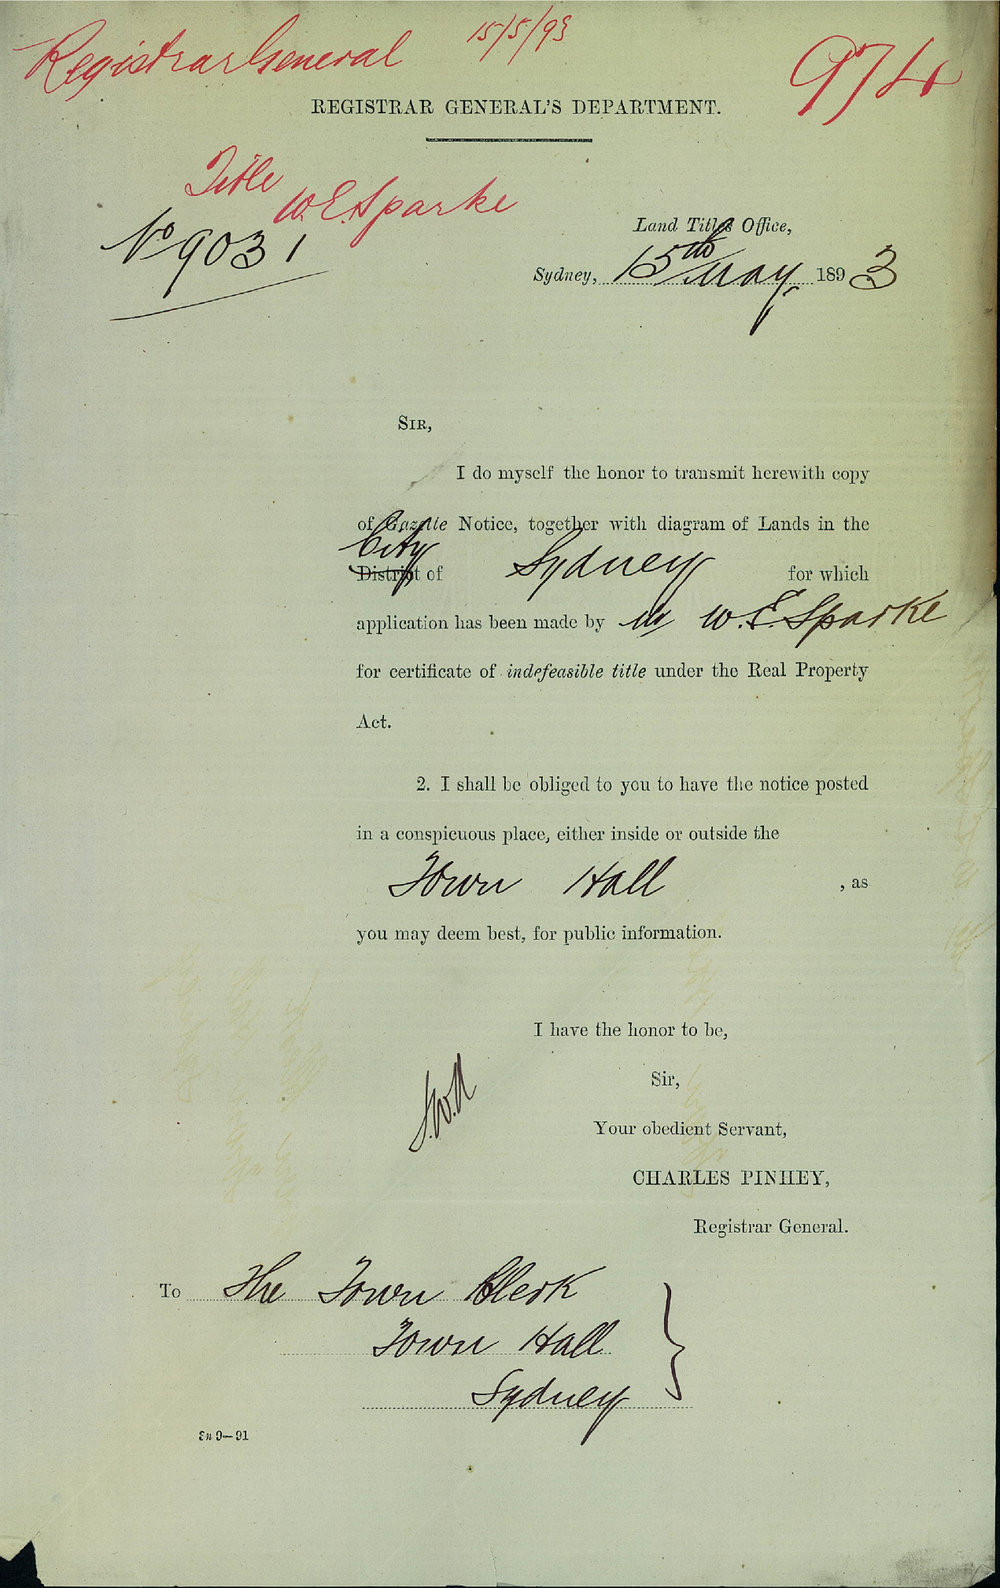 Registrar General 15/5/93
974
REGISTRAR GENERAL'S DEPARTMENT.
Title
W. E. Sparke
No 9031
Land Titles Office,
Sydney, 15th May 1893
SIR,
I do myself the honor to transmit herewith copy
of Gazette Notice, together with diagram of Lands in the
City
District of Sydney for which
application has been made by Mr W. E. Sparke
for certificate of indefeasible title under the Real Property
Act.
2. I shall be obliged to you to have the notice posted
in a conspicuous place, either inside or outside the
Town Hall , as
you may deem best, for public information.
I have the honor to be,
Sir,
Your obedient Servant,
CHARLES PINHEY,
Registrar General.
To The Town Clerk
Town Hall
Sydney
9—91